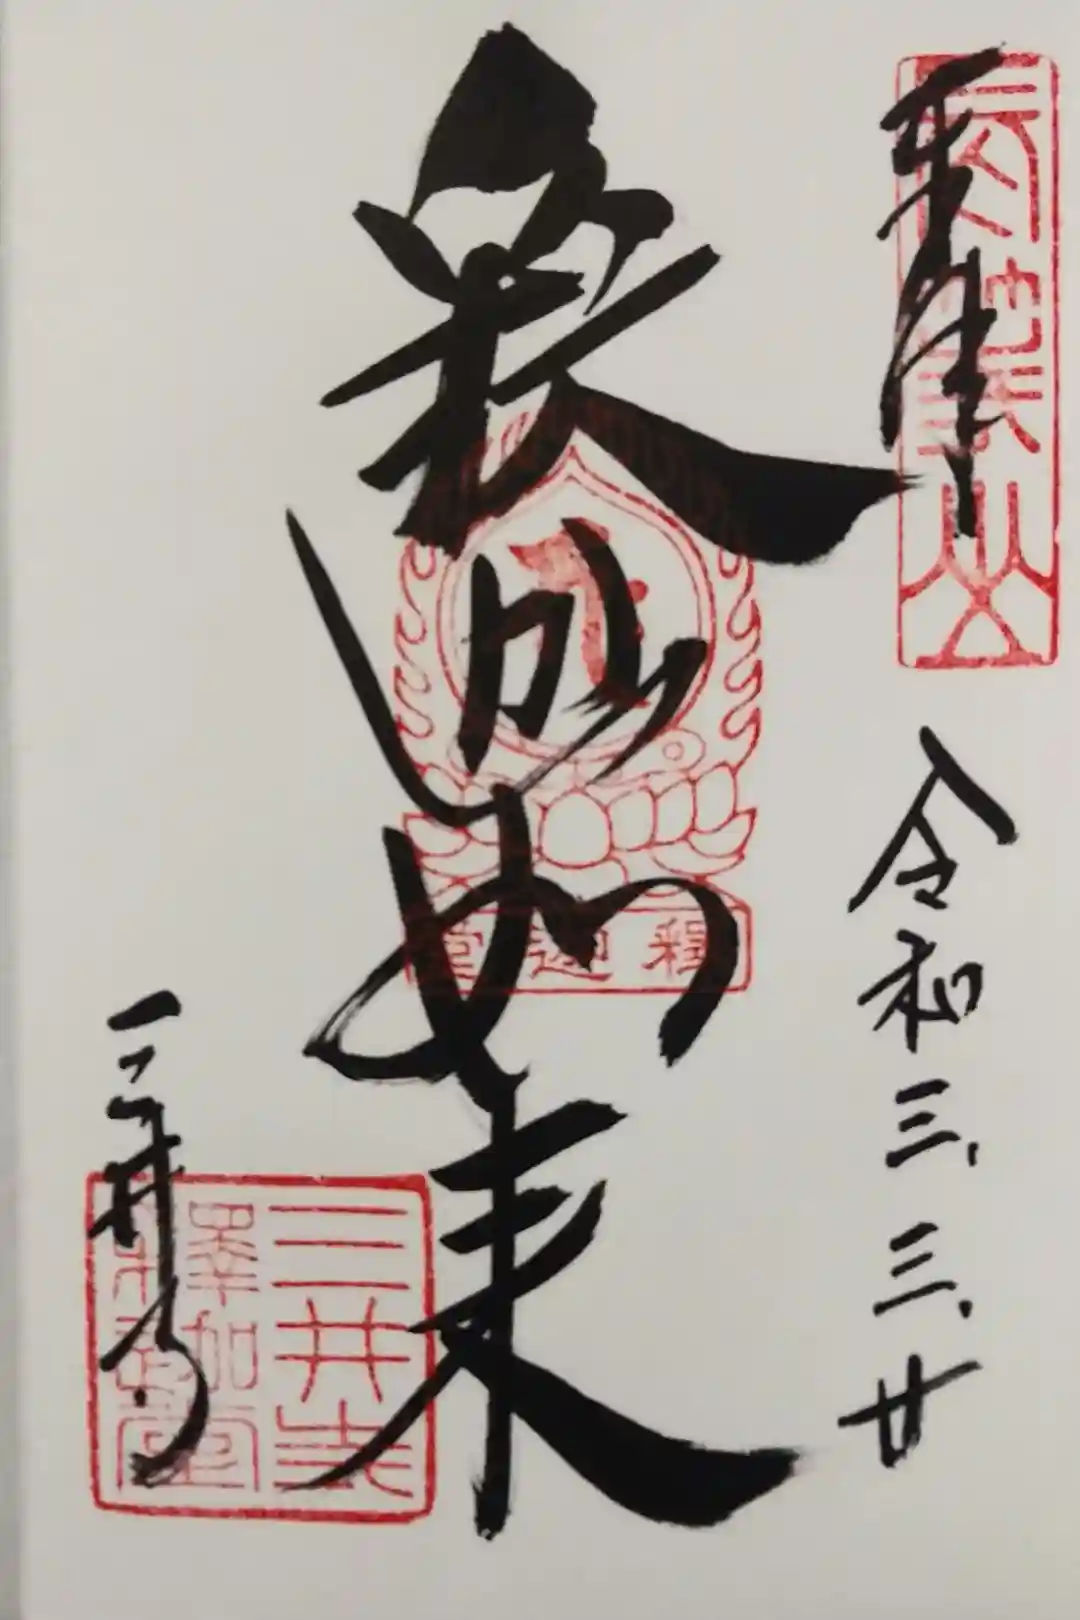 奉拝
長等山
令和三、三、廿
釈迦如来
釈迦堂
三井寺
三井寺
釋迦堂